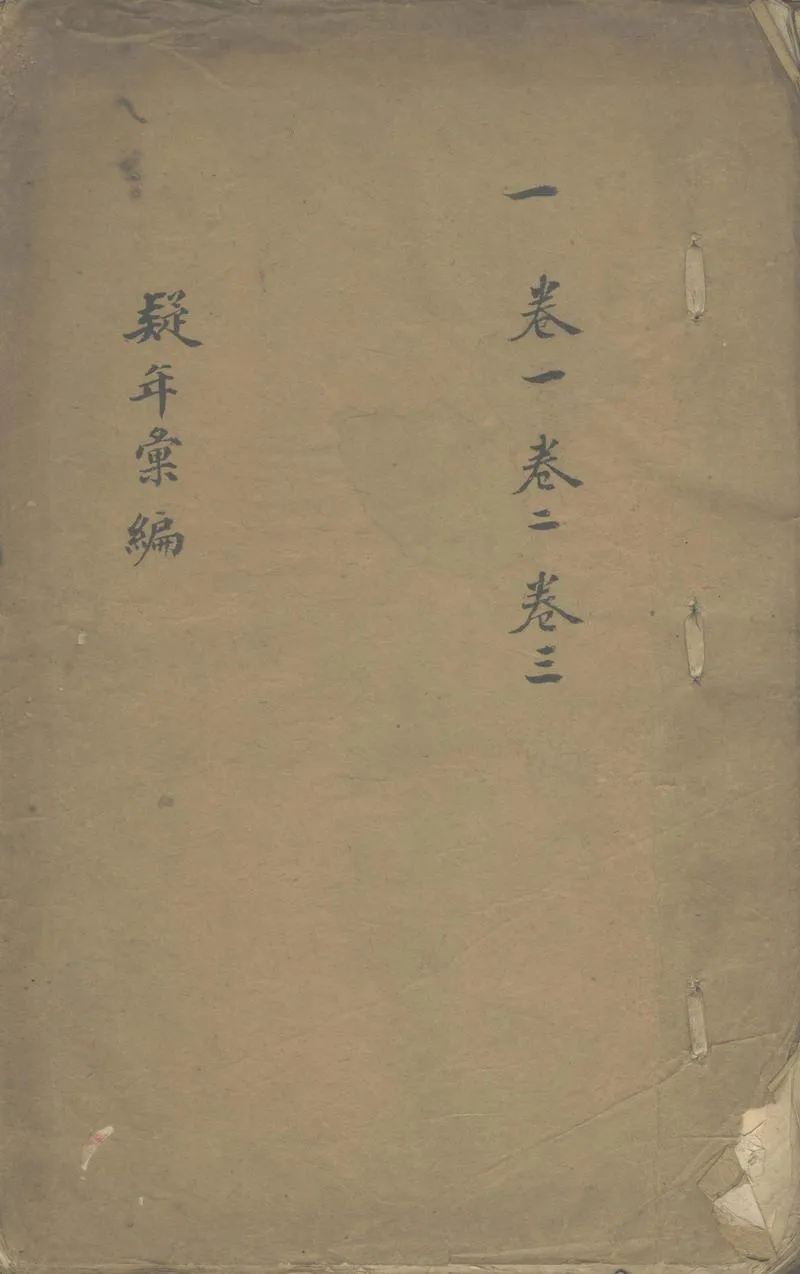 一 卷一 卷二 卷三
疑年彙編